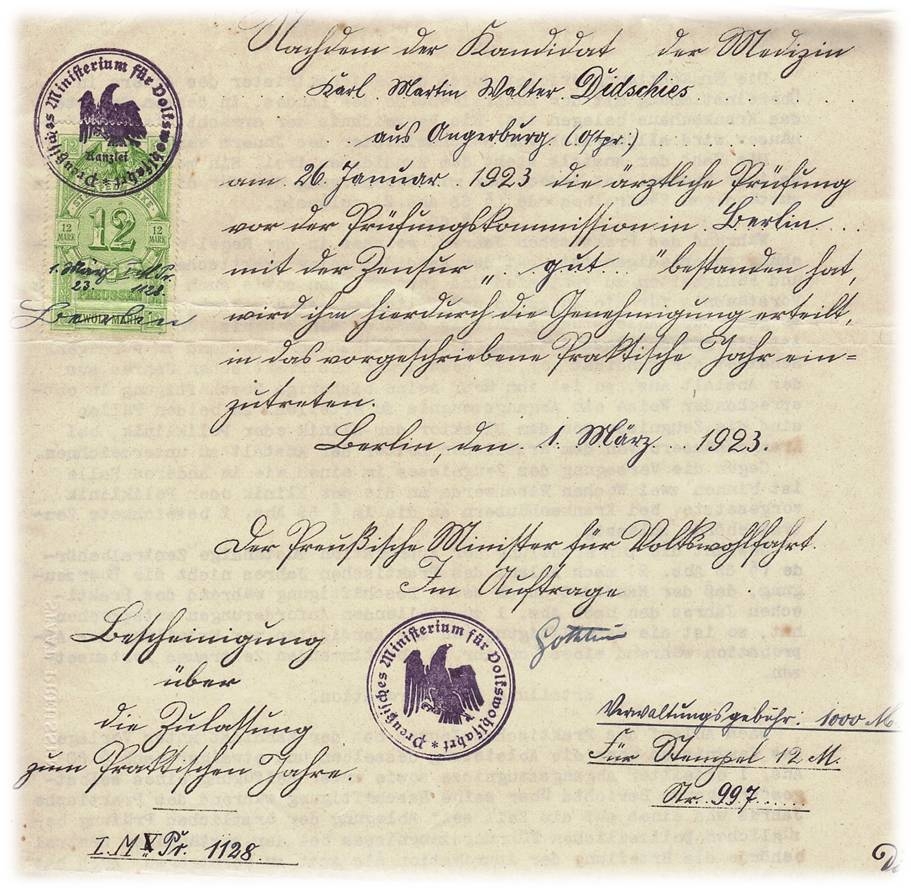 Nachdem der Kandidat der Medizin
Karl Martin Walter Didschies
aus Angerburg (Ostpr.)
am 26. Januar 1923 die ärztliche Prüfung
vor der Prüfungskommission in Berlin
mit der Zensur „gut" bestanden hat,
wird ihm hierdurch die Genehmigung erteilt,
in das vorgeschriebene Praktische Jahr ein=
zutreten.
Berlin, den 1. März 1923.
Der Preußische Minister für Volkswohlfahrt.
Im Auftrage
Bescheinigung
über
die Zulassung
zum Praktischen Jahre.
I. M. V. Pr. 1128.
Verwaltungsgebühr: 1000 M.
Für Stempel 12 M.
Nr. 997
Preußisches Ministerium für Volkswohlfahrt *
Kanzlei
12
12 MARK
12 MARK
1. März
23.
1128
PREUSSEN
ZWÖLF MARK
Berlin
Preußisches Ministerium für Volkswohlfahrt *